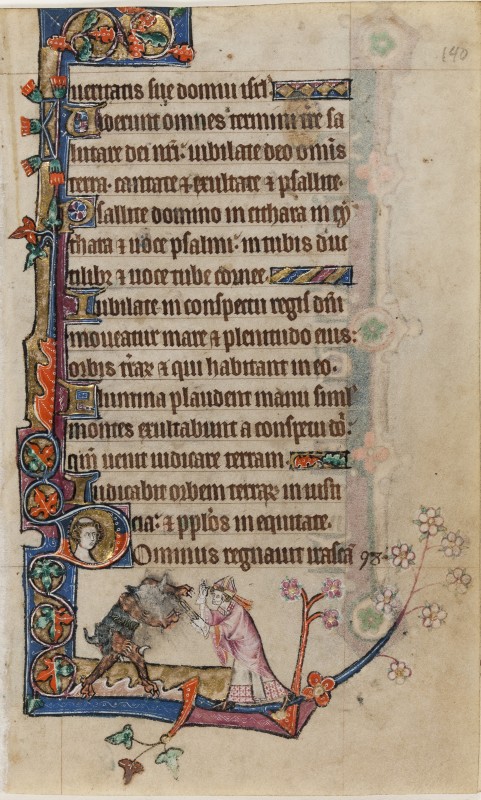 140
ueritatis sue domui isrl
Viderunt omnes termini tre sa
lutare dei nri: iubilate deo omis
terra. cantate ⁊ exultate ⁊ psallite.
Psallite domino in cithara in cy
thara ⁊ uoce psalmi: in tubis duc
tilibȝ ⁊ uoce tube cornee.
Iubilate in conspectu regis dni
moueatur mare ⁊ plenitudo eius:
orbis trarꝫ ⁊ qui habitant in eo.
Flumina plaudent manu simul
montes exultabunt a conspectu dni:
qm̄ uenit iudicare terram.
Iudicabit orbem terrarꝫ in iusti
cia: ⁊ pplos in equitate.
Dominus regnauit irascā 98